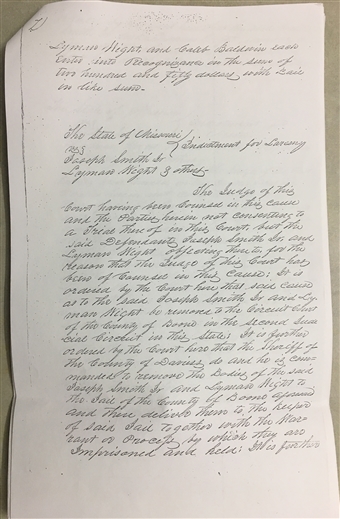 Lyman Wight, and Caleb Baldwin each
enter into Recognizance in the sum of
two hundred and fifty dollars, with bail
in like sum.
The State of Missouri
vs } Indictment for Larceny
Joseph Smith Jr
Lyman Wight & others
The Judge of this
Court having been Counsel in this cause
and the Parties herein not consenting to
a Trial thereof in this Court, but the
said Defendants Joseph Smith Jr and
Lyman Wight objecting thereto, for the
reason that the Judge of this Court has
been of Counsel in this Cause; It is
ordered by the Court here that said cause
as to the said Joseph Smith Jr and Ly-
man Wight be removed to the Circuit Court
of the County of Boone in the second Judi
cial Circuit in this State; It is further
ordered by the Court here that the Sheriff of
the County of Daviess do and he is com-
manded to remove the Bodies of the said
Joseph Smith Jr and Lyman Wight to
the Jail of the County of Boone aforesaid
and there deliver them to the keeper
of said Jail together with the War-
rant or Process by which they are
Imprisoned and held; It is further